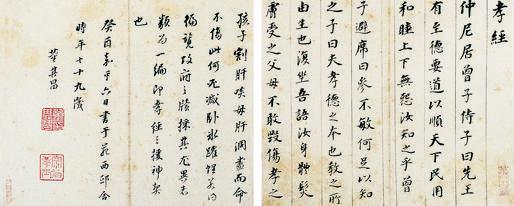 孝經
仲尼居曾子侍子曰先王
有至德要道以順天下民用
和睦上下無怨汝知之乎曾
子避席曰參不敏何足以知
之子曰夫孝德之本也教之所
由生也復坐吾語汝身體髮
膚受之父母不敢毀傷孝之
孩子割肝啖母肝洞盡而命
不傷此何减卧氷
採其尤異者
類為一編即孝經之後神契
也
癸酉嘉平六日書于苑西邸舍
時年七十九歲
董其昌